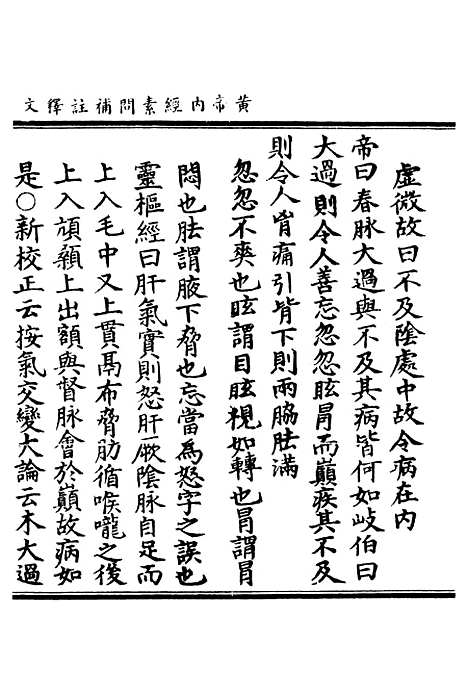 黃帝內經素問補註釋文
虛微故曰不及陰處中故令病在內
帝曰春脉大過與不及其病皆何如岐伯曰
大過則令人善忘忽忽眩冐而巔疾其不及
則令人胷痛引背下則兩脇胠滿
忽忽不爽也眩謂目眩視如轉也冐謂冐
悶也胠謂腋下脅也忘當為怒字之誤也
靈樞經曰肝氣實則怒肝厥陰脉自足而
上入毛中又上貫鬲布脅肋循喉嚨之後
上入頏顙上出額與督脉會於巔故病如
是○新校正云按氣交變大論云木大過